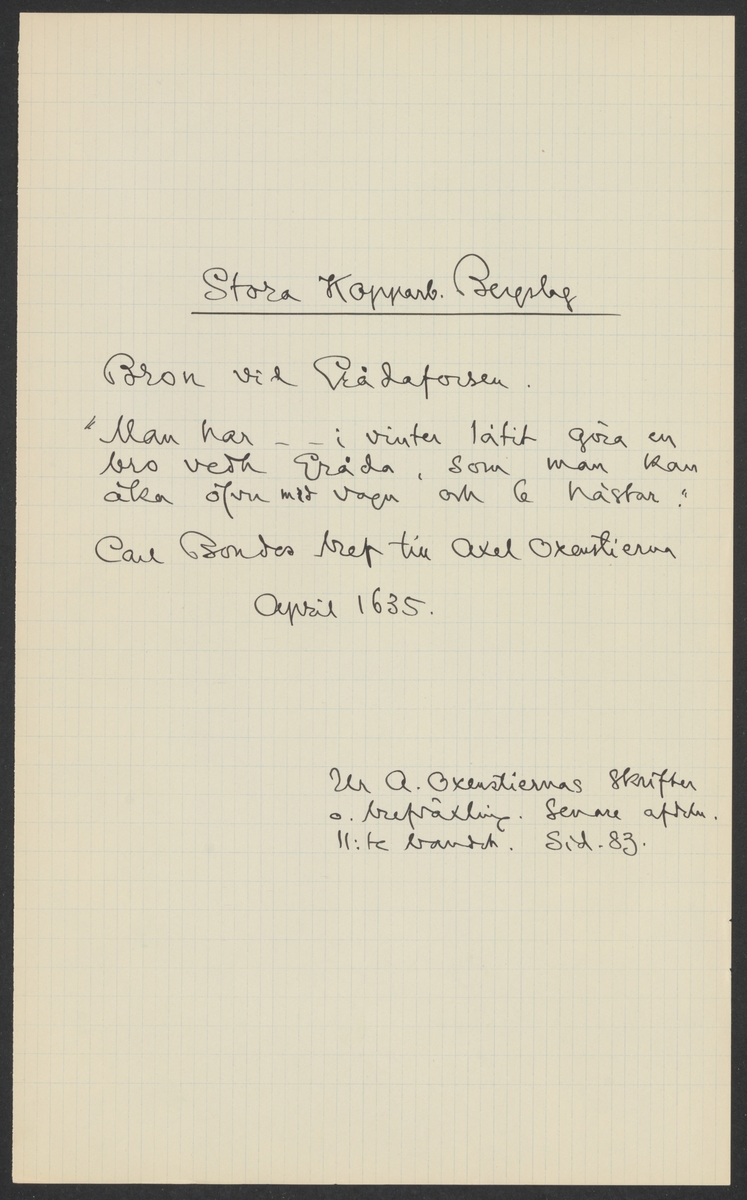 Stora Kopparb. Bergslag
Bron vid Grådaforsen.
"Man har _ _ i vinter låtit göra en
bro vedh Gråda, som man kan
åka öfvr med vagn och 6 hästar."
Carl Bondes bref till Axel Oxenstierna
April 1635.
Ur A. Oxenstiernas Skrifter
o. brefväxling. Senare afdeln.
11:te bandet. Sid. 83.